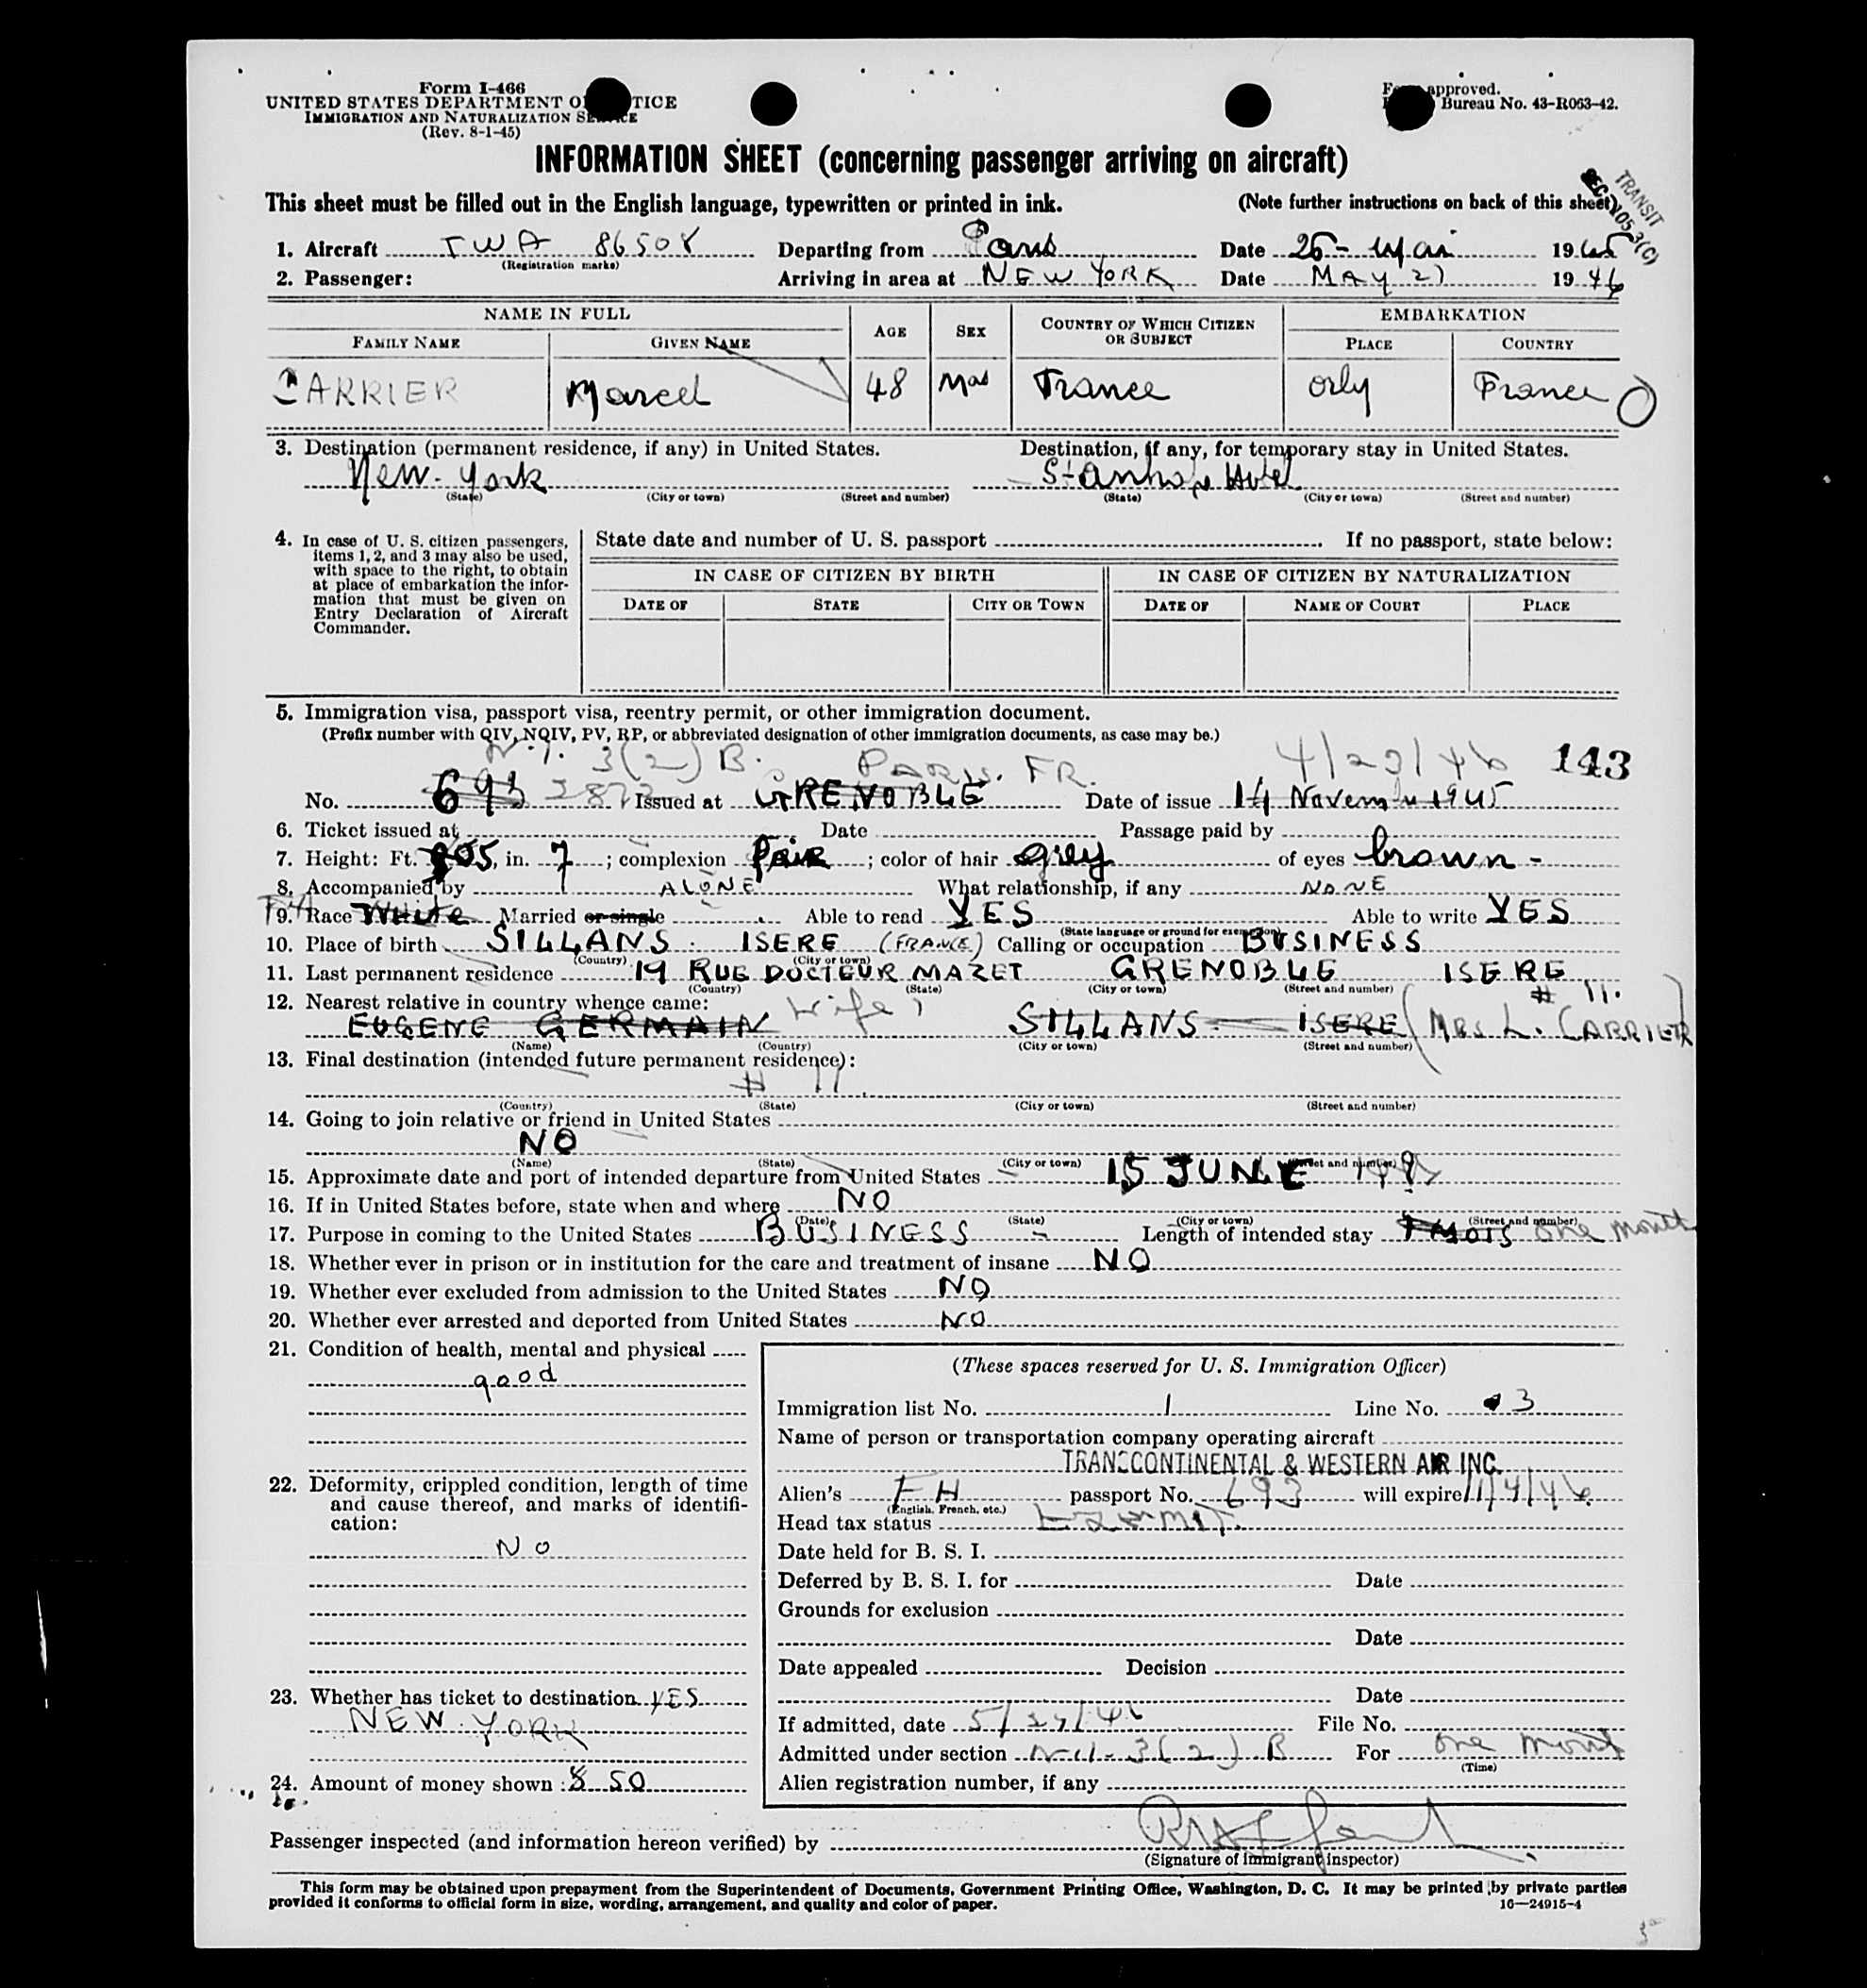 Form I-466
UNITED STATES DEPARTMENT O TICE
IMMIGRATION AND NATURALIZATION SE CE
(Rev. 8-1-45)
approved.
Bureau No. 43-R063-42.
INFORMATION SHEET (concerning passenger arriving on aircraft)
This sheet must be filled out in the English language, typewritten or printed in ink. (Note further instructions on back of this sheet)
TRANSIT
SEC 105 3(C)
1. Aircraft TWA 86508 Departing from Paris Date 26 - Mai 19
(Registration marks)
2. Passenger: Arriving in area at NEW YORK Date MAY 27 1946
NAME IN FULL AGE SEX COUNTRY OF WHICH CITIZEN OR SUBJECT EMBARKATION
FAMILY NAME GIVEN NAME PLACE COUNTRY
CARRIER Marcel 48 Mas France Orly France
3. Destination (permanent residence, if any) in United States. Destination, if any, for temporary stay in United States.
New-York Stanhope Hotel
(State) (City or town) (Street and number) (State) (City or town) (Street and number)
4. In case of U. S. citizen passengers, items 1, 2, and 3 may also be used, with space to the right, to obtain at place of embarkation the information that must be given on Entry Declaration of Aircraft Commander.
State date and number of U. S. passport . If no passport, state below:
IN CASE OF CITIZEN BY BIRTH IN CASE OF CITIZEN BY NATURALIZATION
DATE OF STATE CITY OR TOWN DATE OF NAME OF COURT PLACE
5. Immigration visa, passport visa, reentry permit, or other immigration document.
(Prefix number with QIV, NQIV, PV, RP, or abbreviated designation of other immigration documents, as case may be.)
3(2) B. PARIS. FR. 4/23/46 143
No. 693 Issued at GRENOBLE Date of issue 14 November 1945
6. Ticket issued at Date Passage paid by
7. Height: Ft. 05, in. 7; complexion fair; color of hair grey of eyes brown -
8. Accompanied by ALONE What relationship, if any NONE
9. Race White Married or single Able to read YES Able to write YES
(State language or ground for exemption)
10. Place of birth SILLANS. ISERE (FRANCE) Calling or occupation BUSINESS
(Country) (City or town)
11. Last permanent residence 19 RUE DOCTEUR MAZET GRENOBLE ISERE
(Country) (State) (City or town) (Street and number)
12. Nearest relative in country whence came: Wife # 11.
EUGENE GERMAIN SILLANS. ISERE (MRS L. CARRIER)
(Name) (Country) (City or town) (Street and number)
13. Final destination (intended future permanent residence):
# 11.
(Country) (State) (City or town) (Street and number)
14. Going to join relative or friend in United States
NO
(Name) (State) (City or town) (Street and number)
15. Approximate date and port of intended departure from United States 15 JUNE
16. If in United States before, state when and where NO
(Date) (State) (City or town) (Street and number)
17. Purpose in coming to the United States BUSINESS Length of intended stay 1 MOIS one month
18. Whether ever in prison or in institution for the care and treatment of insane NO
19. Whether ever excluded from admission to the United States NO
20. Whether ever arrested and deported from United States NO
21. Condition of health, mental and physical
good
22. Deformity, crippled condition, length of time and cause thereof, and marks of identification:
No
23. Whether has ticket to destination YES
NEW YORK
24. Amount of money shown: $ 50
(These spaces reserved for U. S. Immigration Officer)
Immigration list No. 1 Line No. 3
Name of person or transportation company operating aircraft
TRANSCONTINENTAL & WESTERN AIR INC.
Alien's passport No. 693 will expire 11/4/46
(English, French, etc.)
Head tax status Exempt.
Date held for B. S. I.
Deferred by B. S. I. for Date
Grounds for exclusion
Date
Date appealed Decision
Date
If admitted, date 5/27/46 File No.
Admitted under section 3(2) B For one month
(Time)
Alien registration number, if any
Passenger inspected (and information hereon verified) by
(Signature of immigrant inspector)
This form may be obtained upon prepayment from the Superintendent of Documents, Government Printing Office, Washington, D. C. It may be printed by private parties
provided it conforms to official form in size, wording, arrangement, and quality and color of paper. 16—24915-4